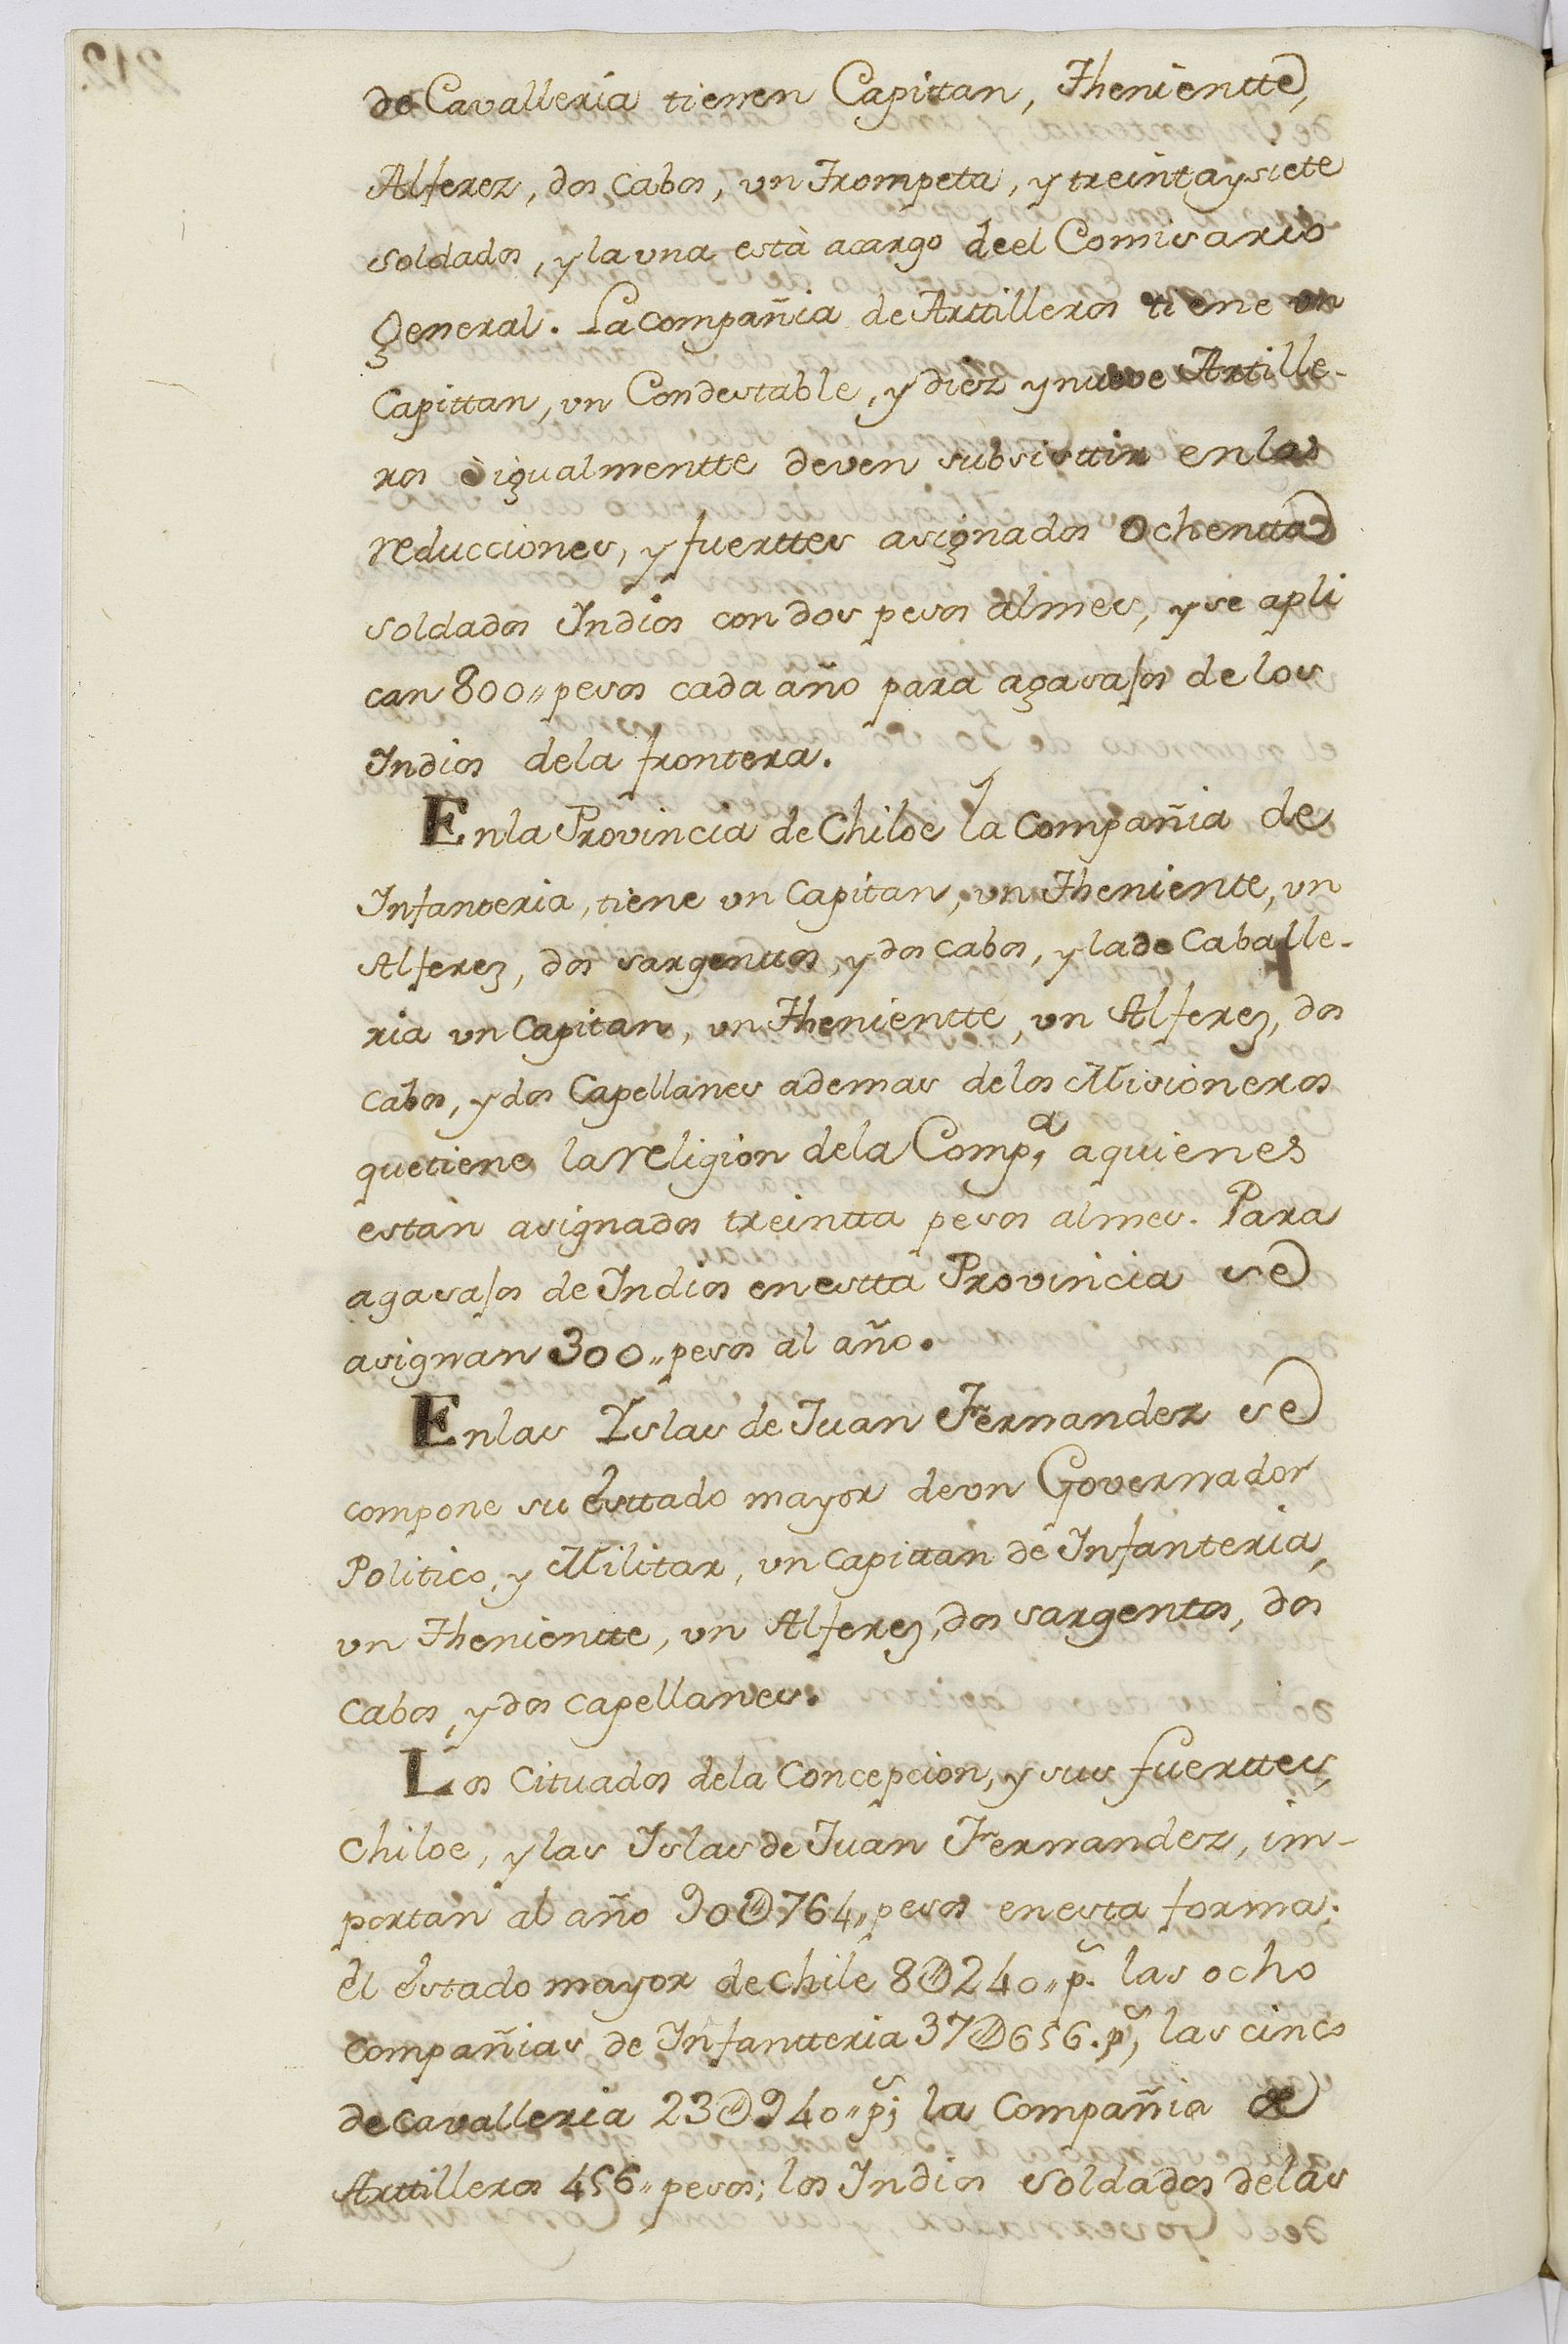 de Cavalleria tienen Capittan, Thenientte,
Alferez, dos Cabos, un Trompeta, y treintaysiete
soldados, y la una està acargo deel Comisario
General. La compañia de Arttilleros tiene un
Capittan, un Condestable, y diez y nueve Artille-
ros è igualmentte deven subsisttir en las
reducciones, y fuerttes asignados Ochentta
soldados Indios con dos pesos almes, y se apli
can 800,, pesos cada año para agasajos de los
Indios dela frontera.
Enla Provincia de Chiloe la compañia de
Infanteria, tiene un Capitan, un Theniente, un
Alferez, dos sargenttos, y dos cabos, y la de Caballe-
ria un Capitan, un Thenientte, un Alferez, dos
cabos, y dos Capellanes ademas delos Misioneros
quetiene la religion dela Comp.ª aquienes
estan asignados treintta pesos almes. Para
agasajos de Indios en estta Provincia se
asignan 300,, pesos al año.
Enlas Yslas de Juan Fernandez se
compone su Esttado mayor deun Governador
Politico, y Militar, un Capittan de Infanteria,
un Thenientte, un Alferez, dos sargentos, dos
Cabos, y dos capellanes.
Los Cituados dela Concepcion, y sus fuerttes,
Chiloe, y las Islas de Juan Fernandez, im-
portan al año 90@764,, pesos en esta forma.
el estado mayor de Chile 8@240,, p.s las ocho
compañias de Infantteria 37@656. p.s, las cinco
de cavalleria 23@940,, p.s; la Compañia de
Arttilleros 456,, pesos; los Indios soldados delas